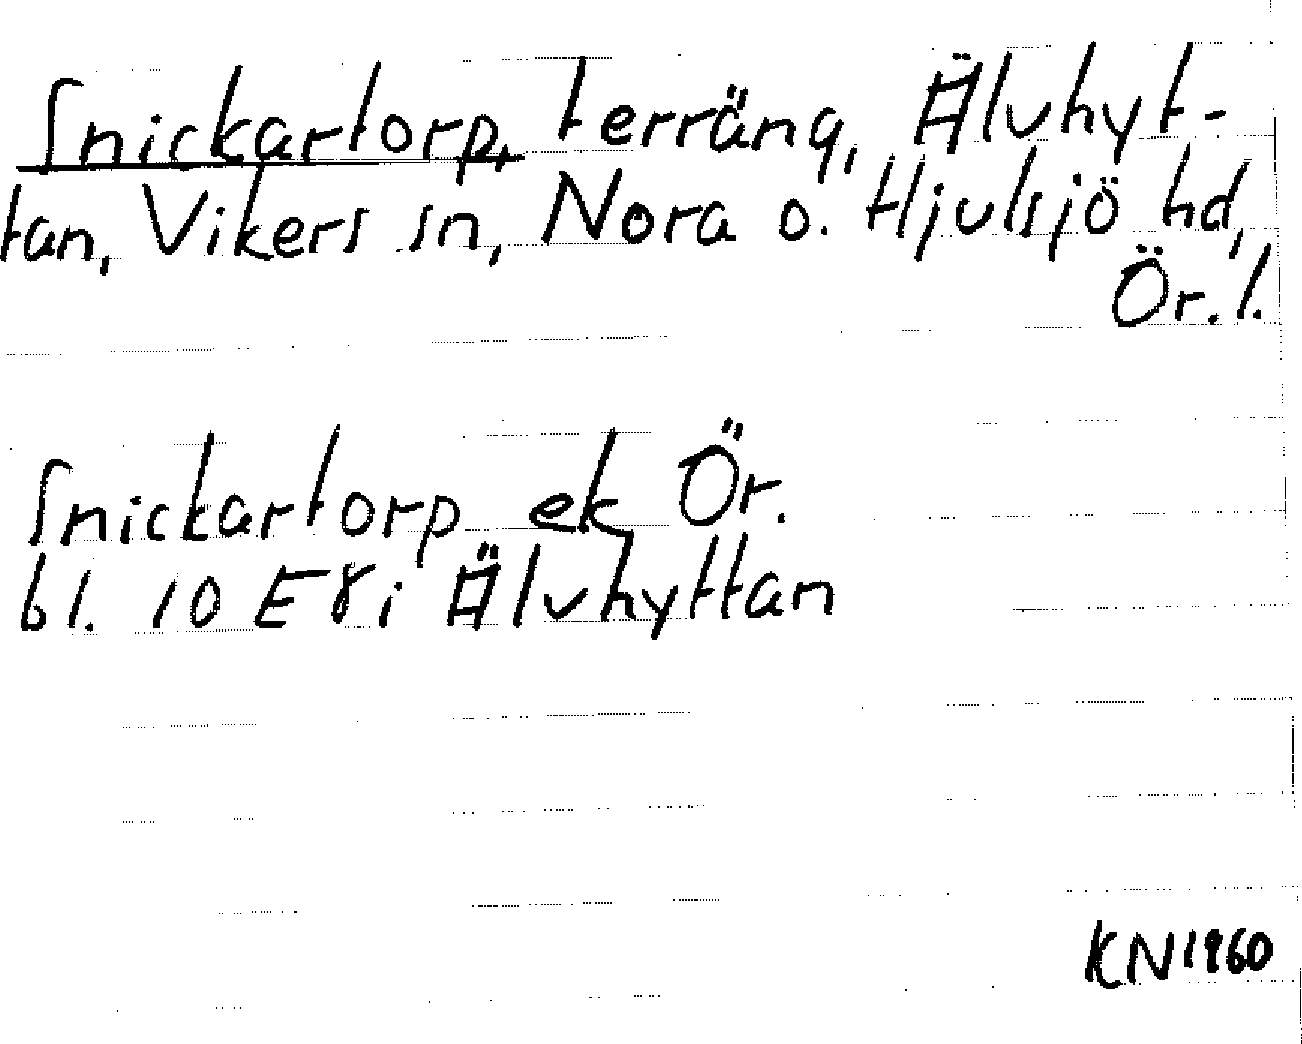 Snickartorp, terräng, Älvhyt-
tan, Vikers sn, Nora o. Hjulsjö hd,
Ör. l.
Snickartorp ek Ör.
bl. 10 E8i Älvhyttan
KN 1960